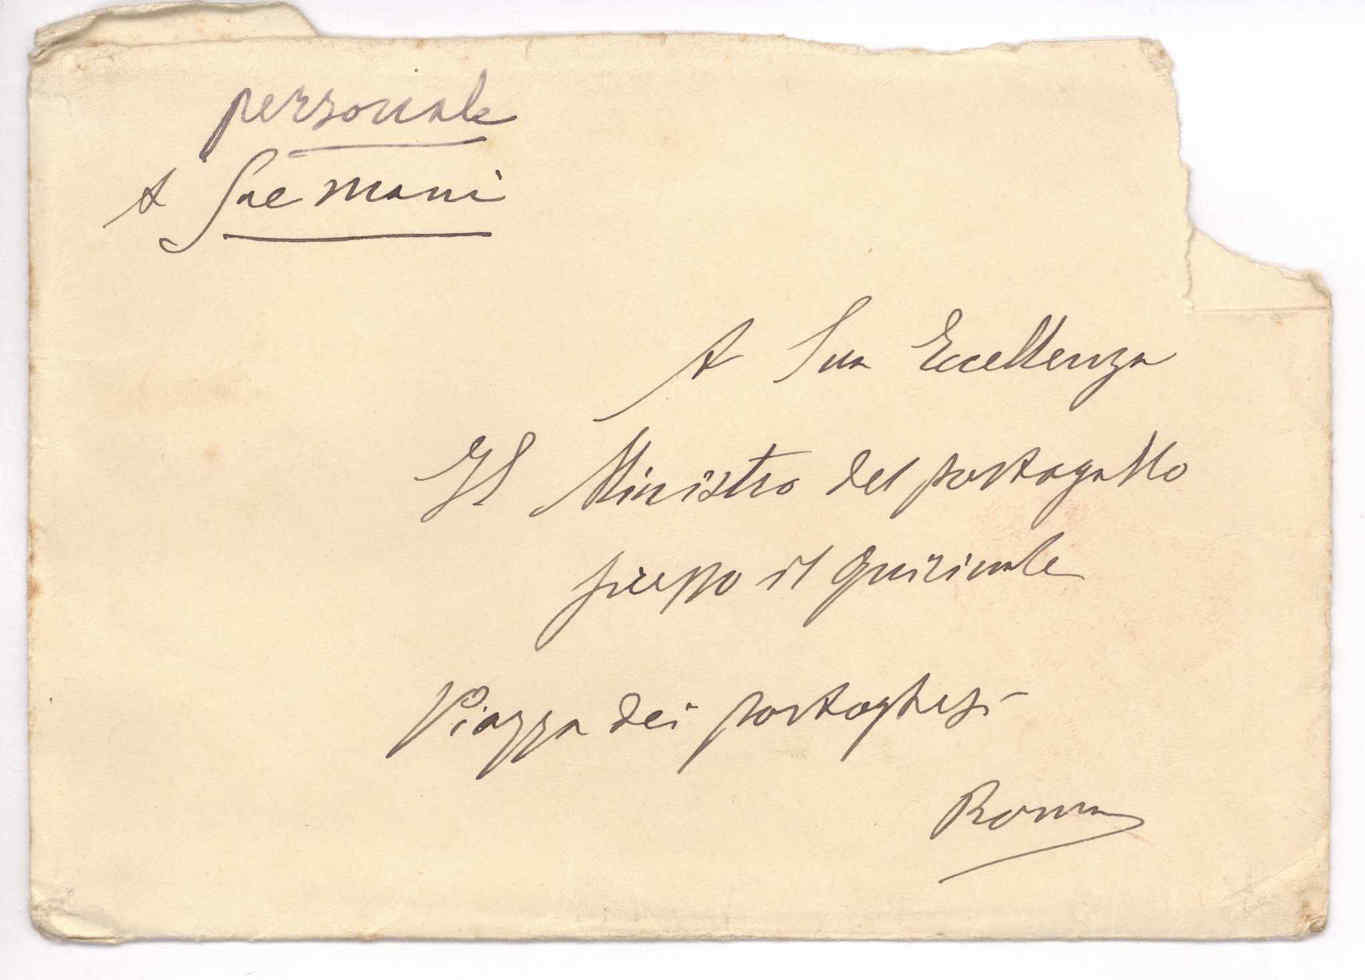 personale
A Sue mani
A Sua Eccellenza
Il Ministro del portogallo
presso il Quirinale
Piazza dei portoghesi
Roma